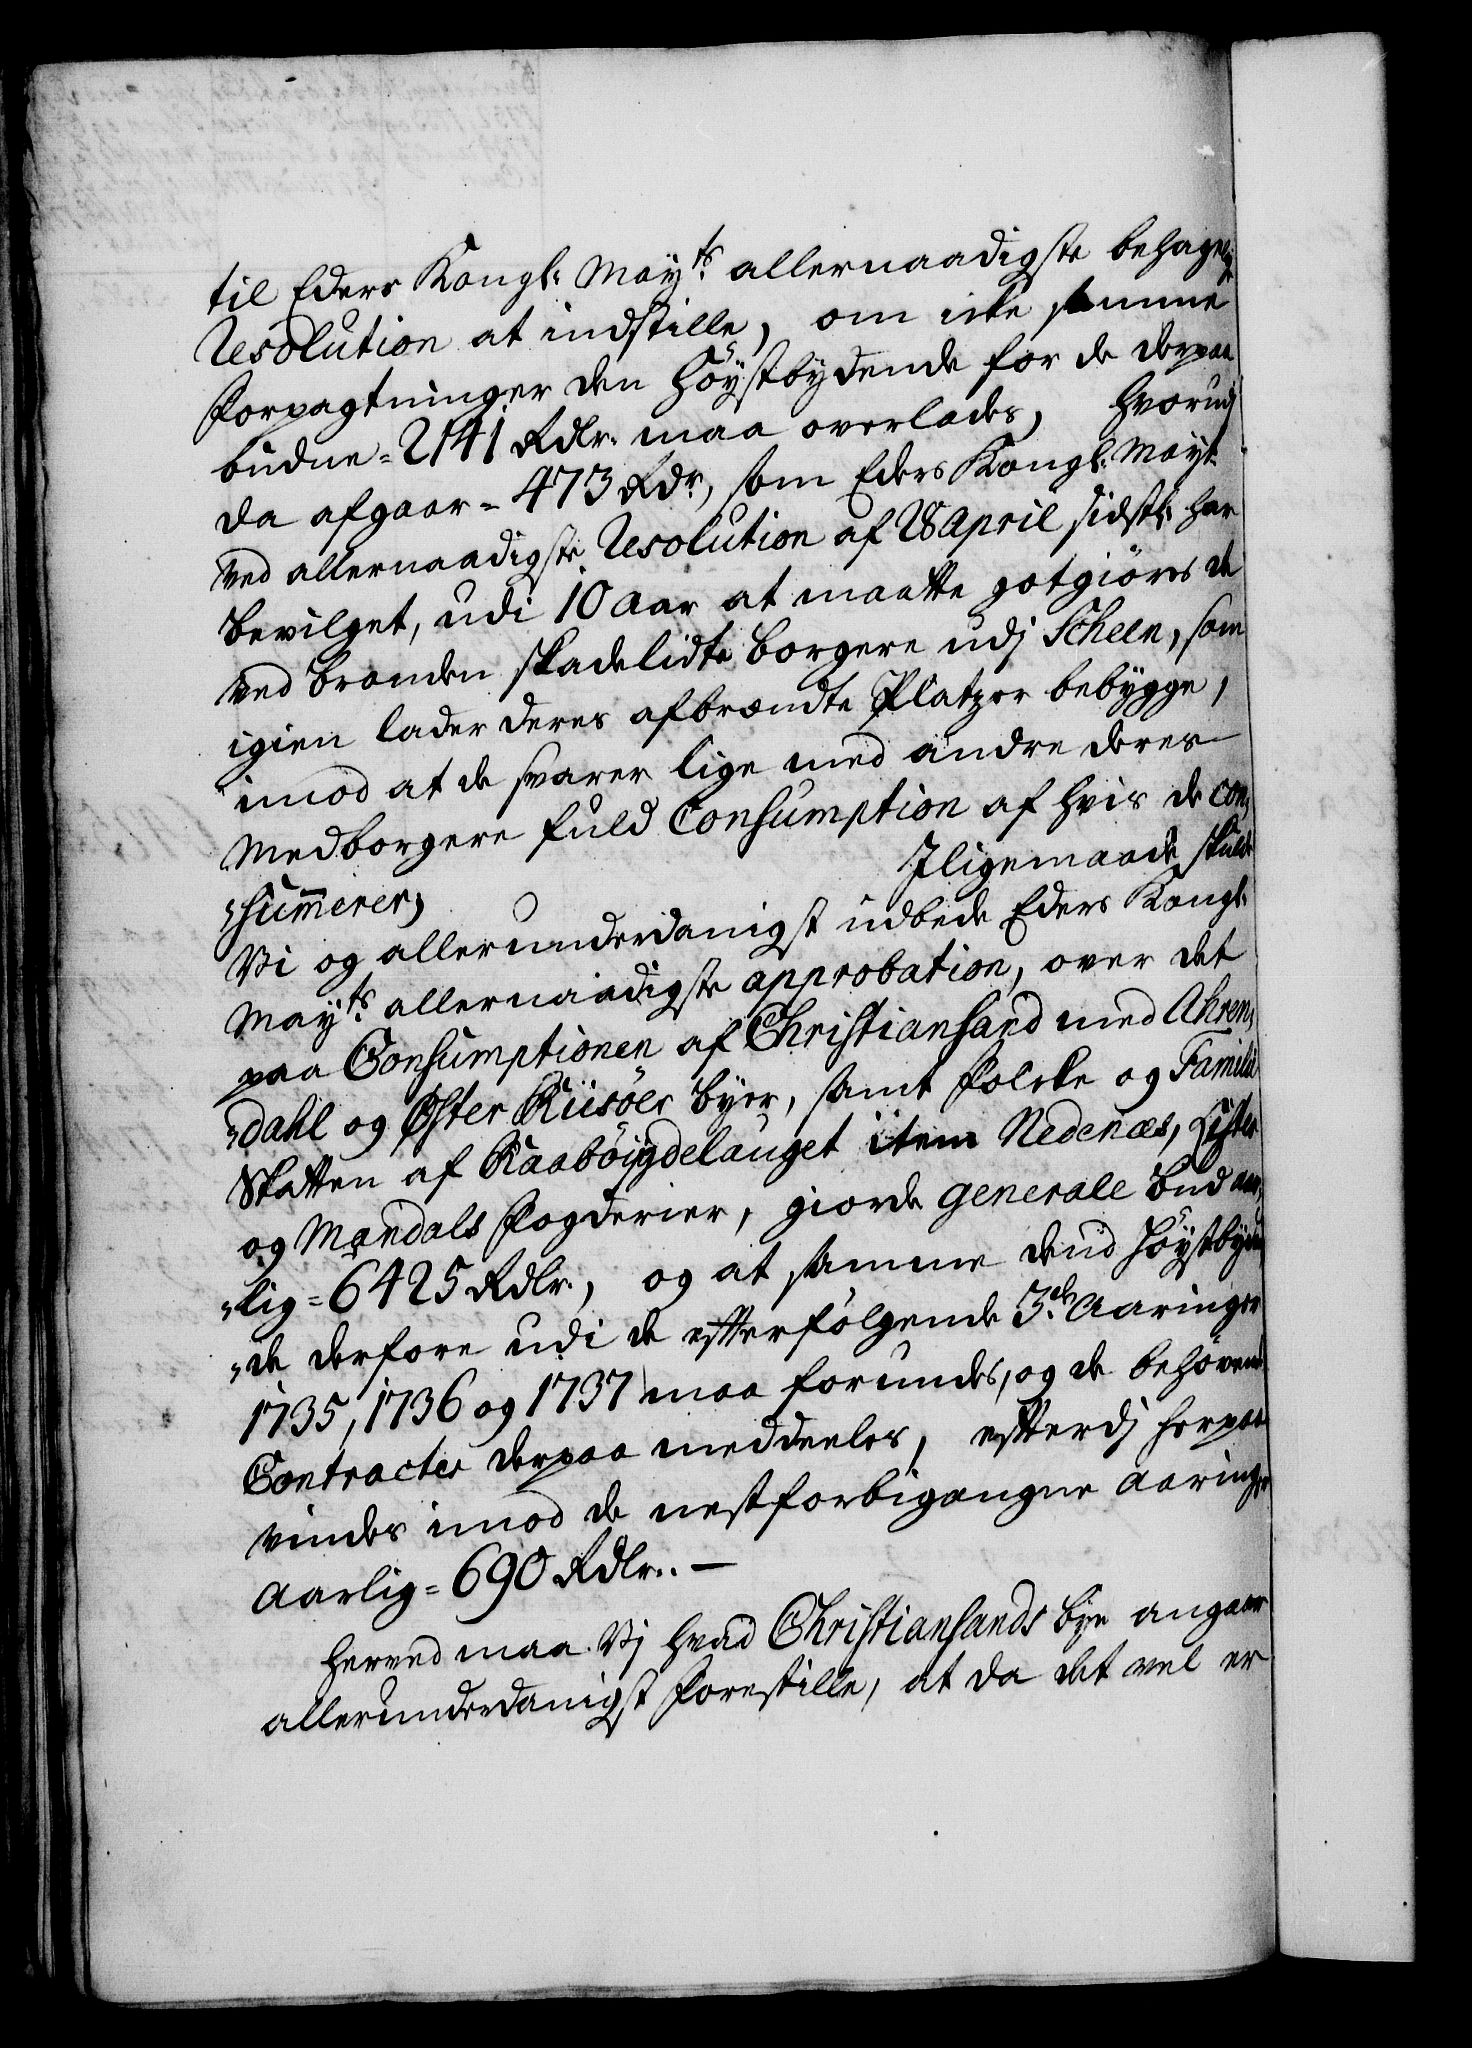 til Eders Kongl: Mayts allernaadigste behagelig
Resolution at indstille, om icke samme
Forpagtninger den Høystbydende for de derpaa
budne = 2141 Rdlr. maa overlades, hvorudj
da afgaar = 473 Rdr, som Eders Kongl: Mayt
ved allernaadigste Resolution af 28 April sidstl: har
bevilget, udi 10 Aar at maatte gotgiøres de
ved Branden skadelidte Borgere udj Scheen, som
igien lader deres afbrændte Platzer bebygge,
imod at de svarer lige med andre deres
Medborgere fuld Consumption af hvis de con-
-summerer; Iligemaade skulde
Vi og allerunderdanigst udbede Eders Kongl:
Mayts allernaadigste approbation, over det
paa Consumptionen af Christiansand med Ahren-
-dahl og Øster Riisöer Byer, samt Folcke og Familie
Skatten af Raaböijgdelauget item Nedenæs, Lister
og Mandals Fogderier, giorde generale Bud aar-
-lig = 6425 Rdlr., og at samme dend Høystbyden-
-de derfore udi de efterfølgende 3de Aaringer
1735, 1736 og 1737 maa forundes, og de behøvende
Contracter derpaa meddeeles, efterdj herpaa
vindes imod de nestforbigangne Aaringer
Aarlig = 690 Rdlr. —
Herved maa Vj hvad Christiansands Bye angaar
allerunderdanigst forestille, at da det vel er